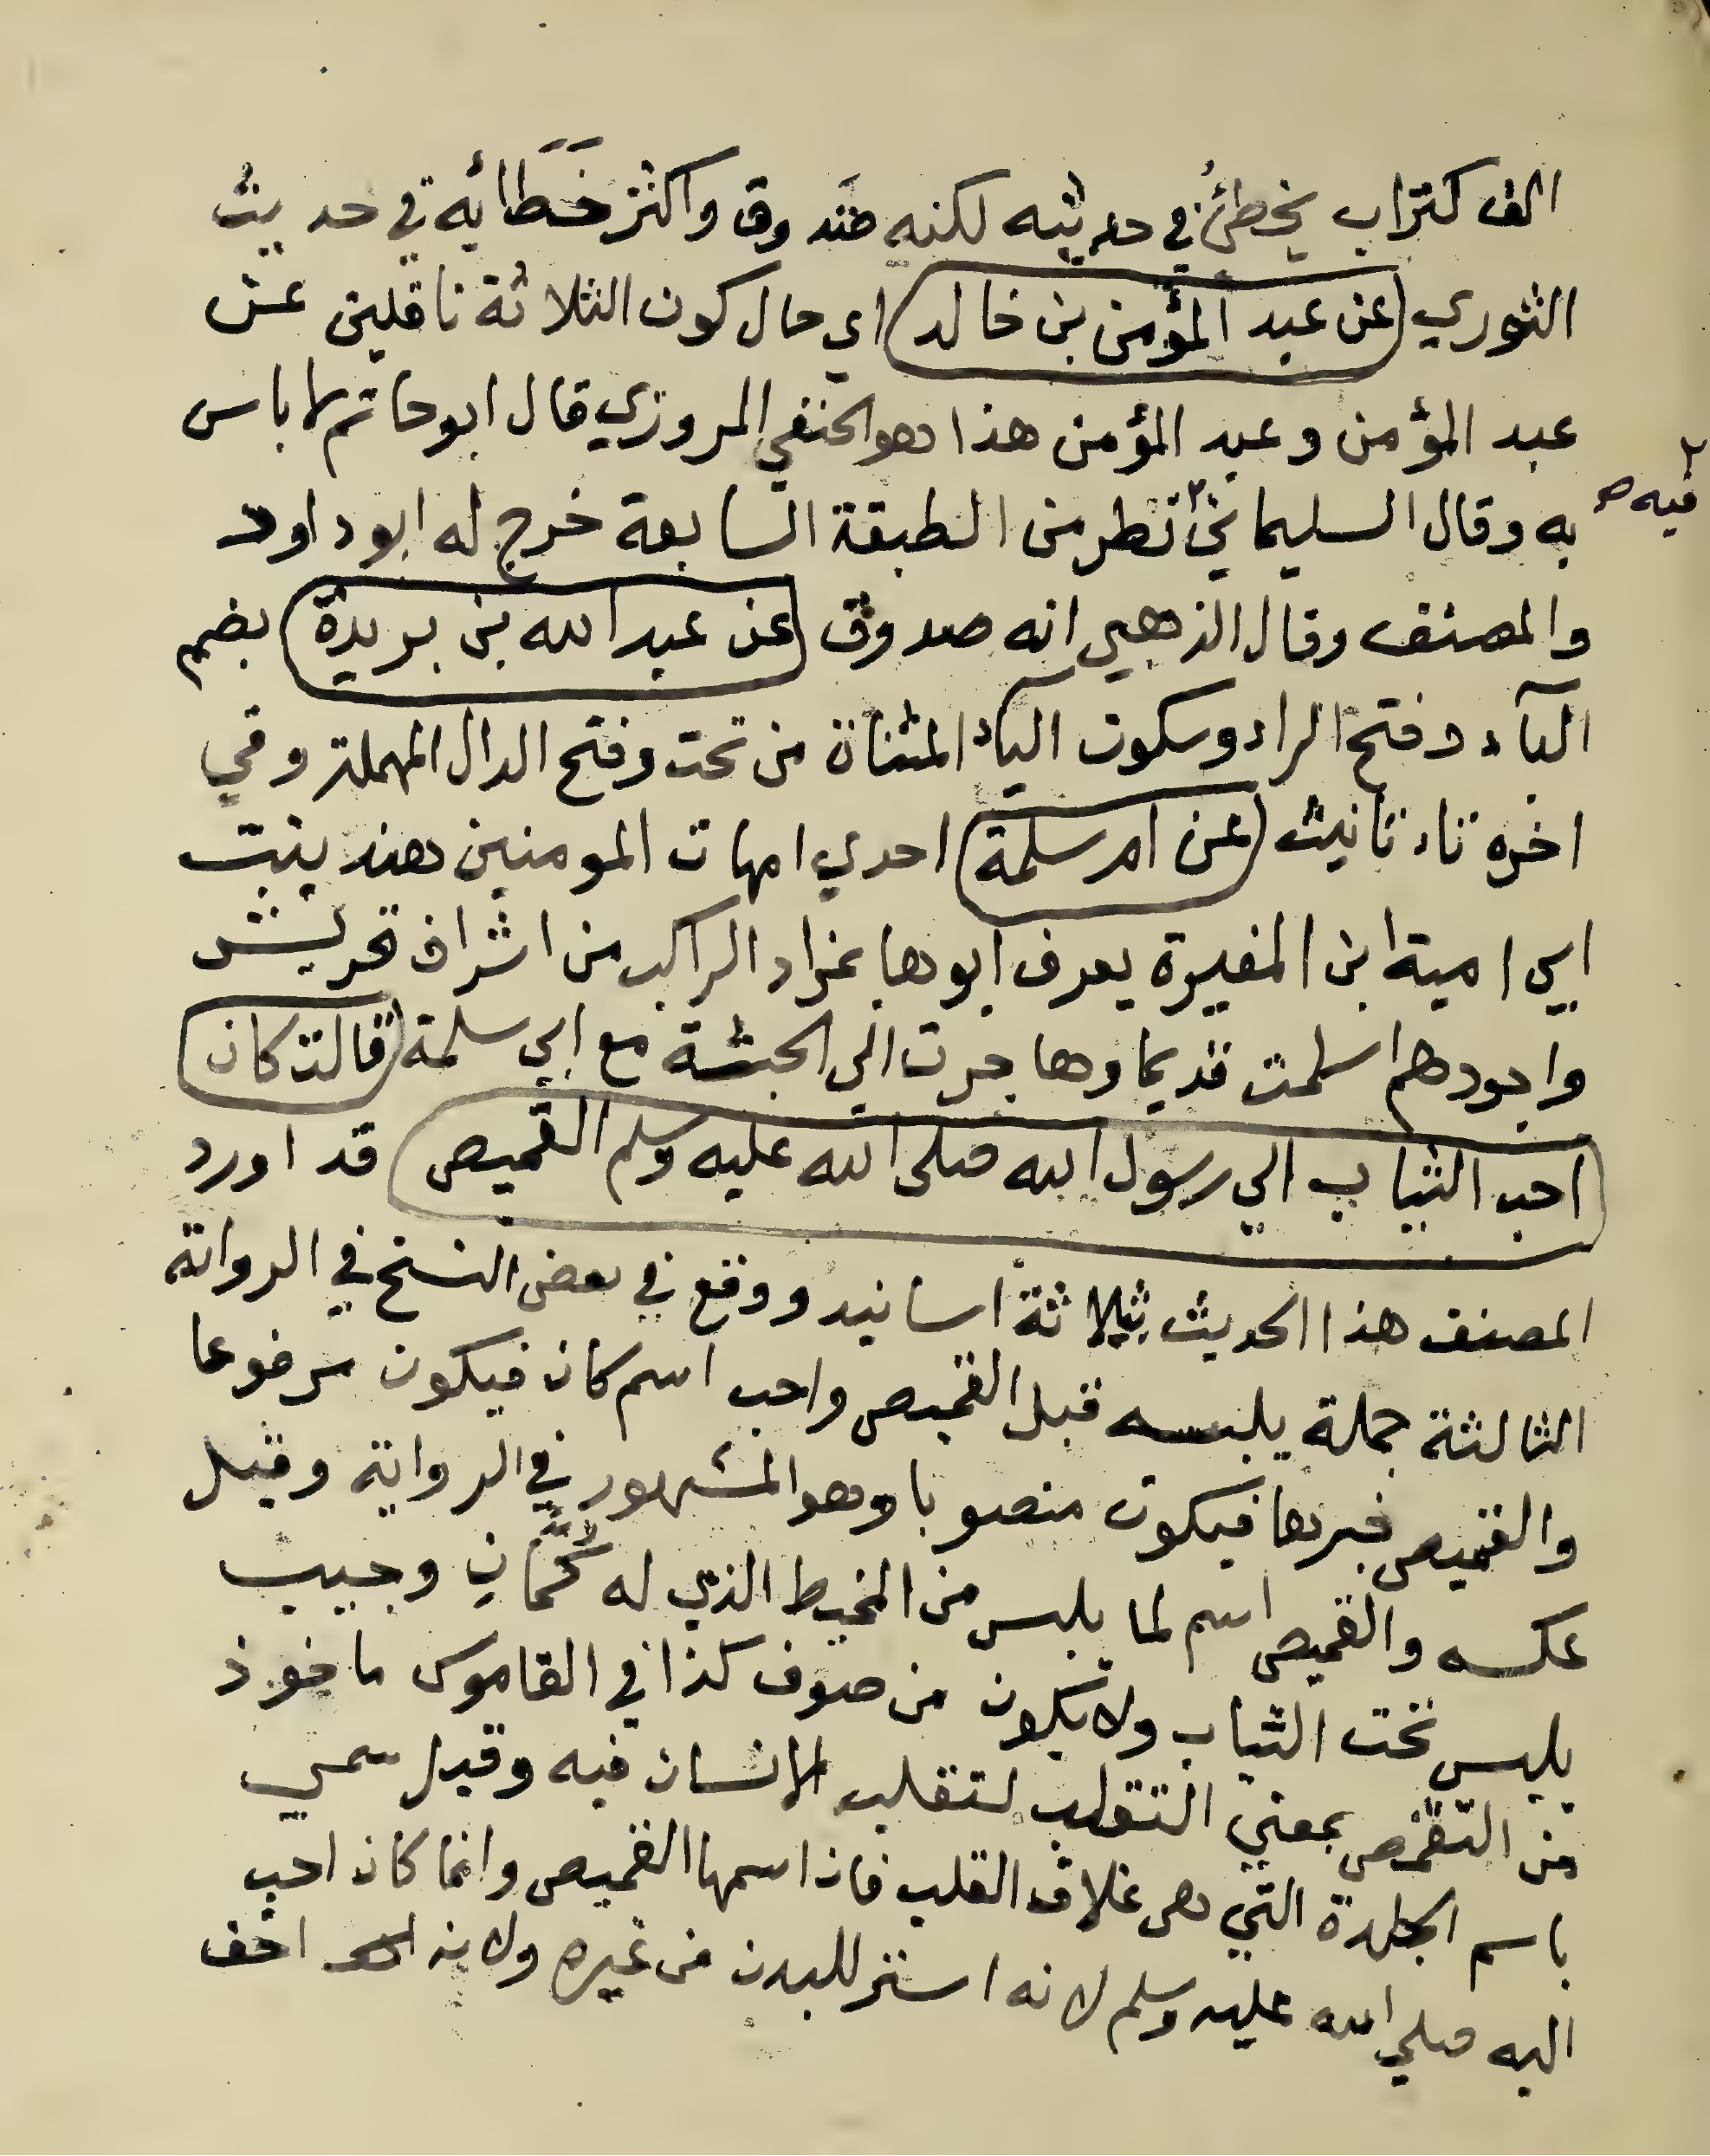 الف كتراب يخطئ في حديثه لكنه صدوق واكثر خَطَائِه في حديث
الثوري عن عبد المؤمن بن خالد اي حال كون الثلاثة ناقلين عن
عبد المؤمن وعبد المؤمن هذا هو الحنفي المروزي قال ابو حاتم لا باس
به وقال السليماني نظر من الطبقة السابعة خرج له ابو داود
فيه ص
والمصنف وقال الذهبي انه صدوق عن عبد الله بن بريدة بضم
البآء وفتح الراء وسكون اليآء المثناة من تحت وفتح الدال المهملة وفي
اخره تاء تانيث عن ام سلمة احدي امهات المومنين هند بنت
ابي امية ابن المغيرة يعرف ابوها بزاد الراكب من اشراف قريش
واجودهم اسلمت قديما وهاجرت الي الحبشة مع ابي سلمة قالت كان
احب الثياب الي رسول الله صلي الله عليه وسلم القميص قد اورد
المصنف هذا الحديث بثلاثة اسانيد ووقع في بعض النسخ في الرواية
الثالثة جملة يلبسه قبل القميص واحب اسم كان فيكون مرفوعا
والقميص خبرها فيكون منصوبا وهو المشهور في الرواية وقيل
عكسه والقميص اسم لما يلبس من المخيط الذي له كُمَّانِ وجيب
يلبس تحت الثياب ولا يكون من صوف كذا في القاموس ماخوذ
من التقمص بمعني التقلب لتقلب الانسان فيه وقيل سمي
باسم الجلدة التي هي غلاف القلب فان اسمها القميص وانما كان احب
اليه صلي الله عليه وسلم لانه استر للبدن من غيره ولانه اخف